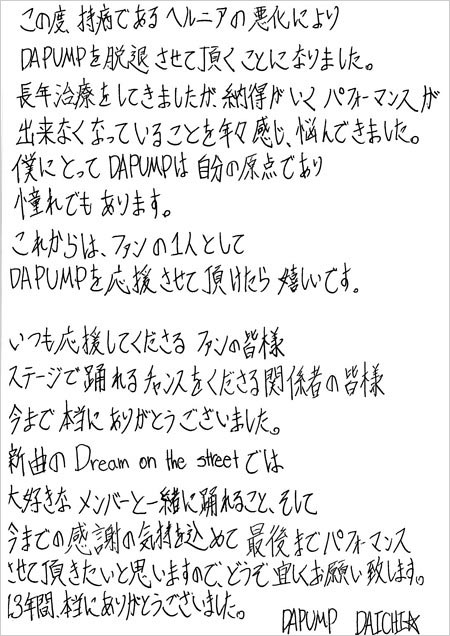 この度、持病であるヘルニアの悪化により
DAPUMPを脱退させて頂くことになりました。
長年治療をしてきましたが、納得がいくパフォーマンスが
出来なくなっていることを年々感じ、悩んできました。
僕にとってDAPUMPは自分の原点であり
憧れでもあります。
これからは、ファンの1人として
DAPUMPを応援させて頂けたら嬉しいです。
いつも応援してくださるファンの皆様
ステージで踊れるチャンスをくださる関係者の皆様
今まで本当にありがとうございました。
新曲のDream on the streetでは
大好きなメンバーと一緒に踊れること、そして
今までの感謝の気持を込めて最後までパフォーマンス
させて頂きたいと思いますので、どうぞ宜しくお願い致します。
13年間、本当にありがとうございました。
DAPUMP DAICHI☆